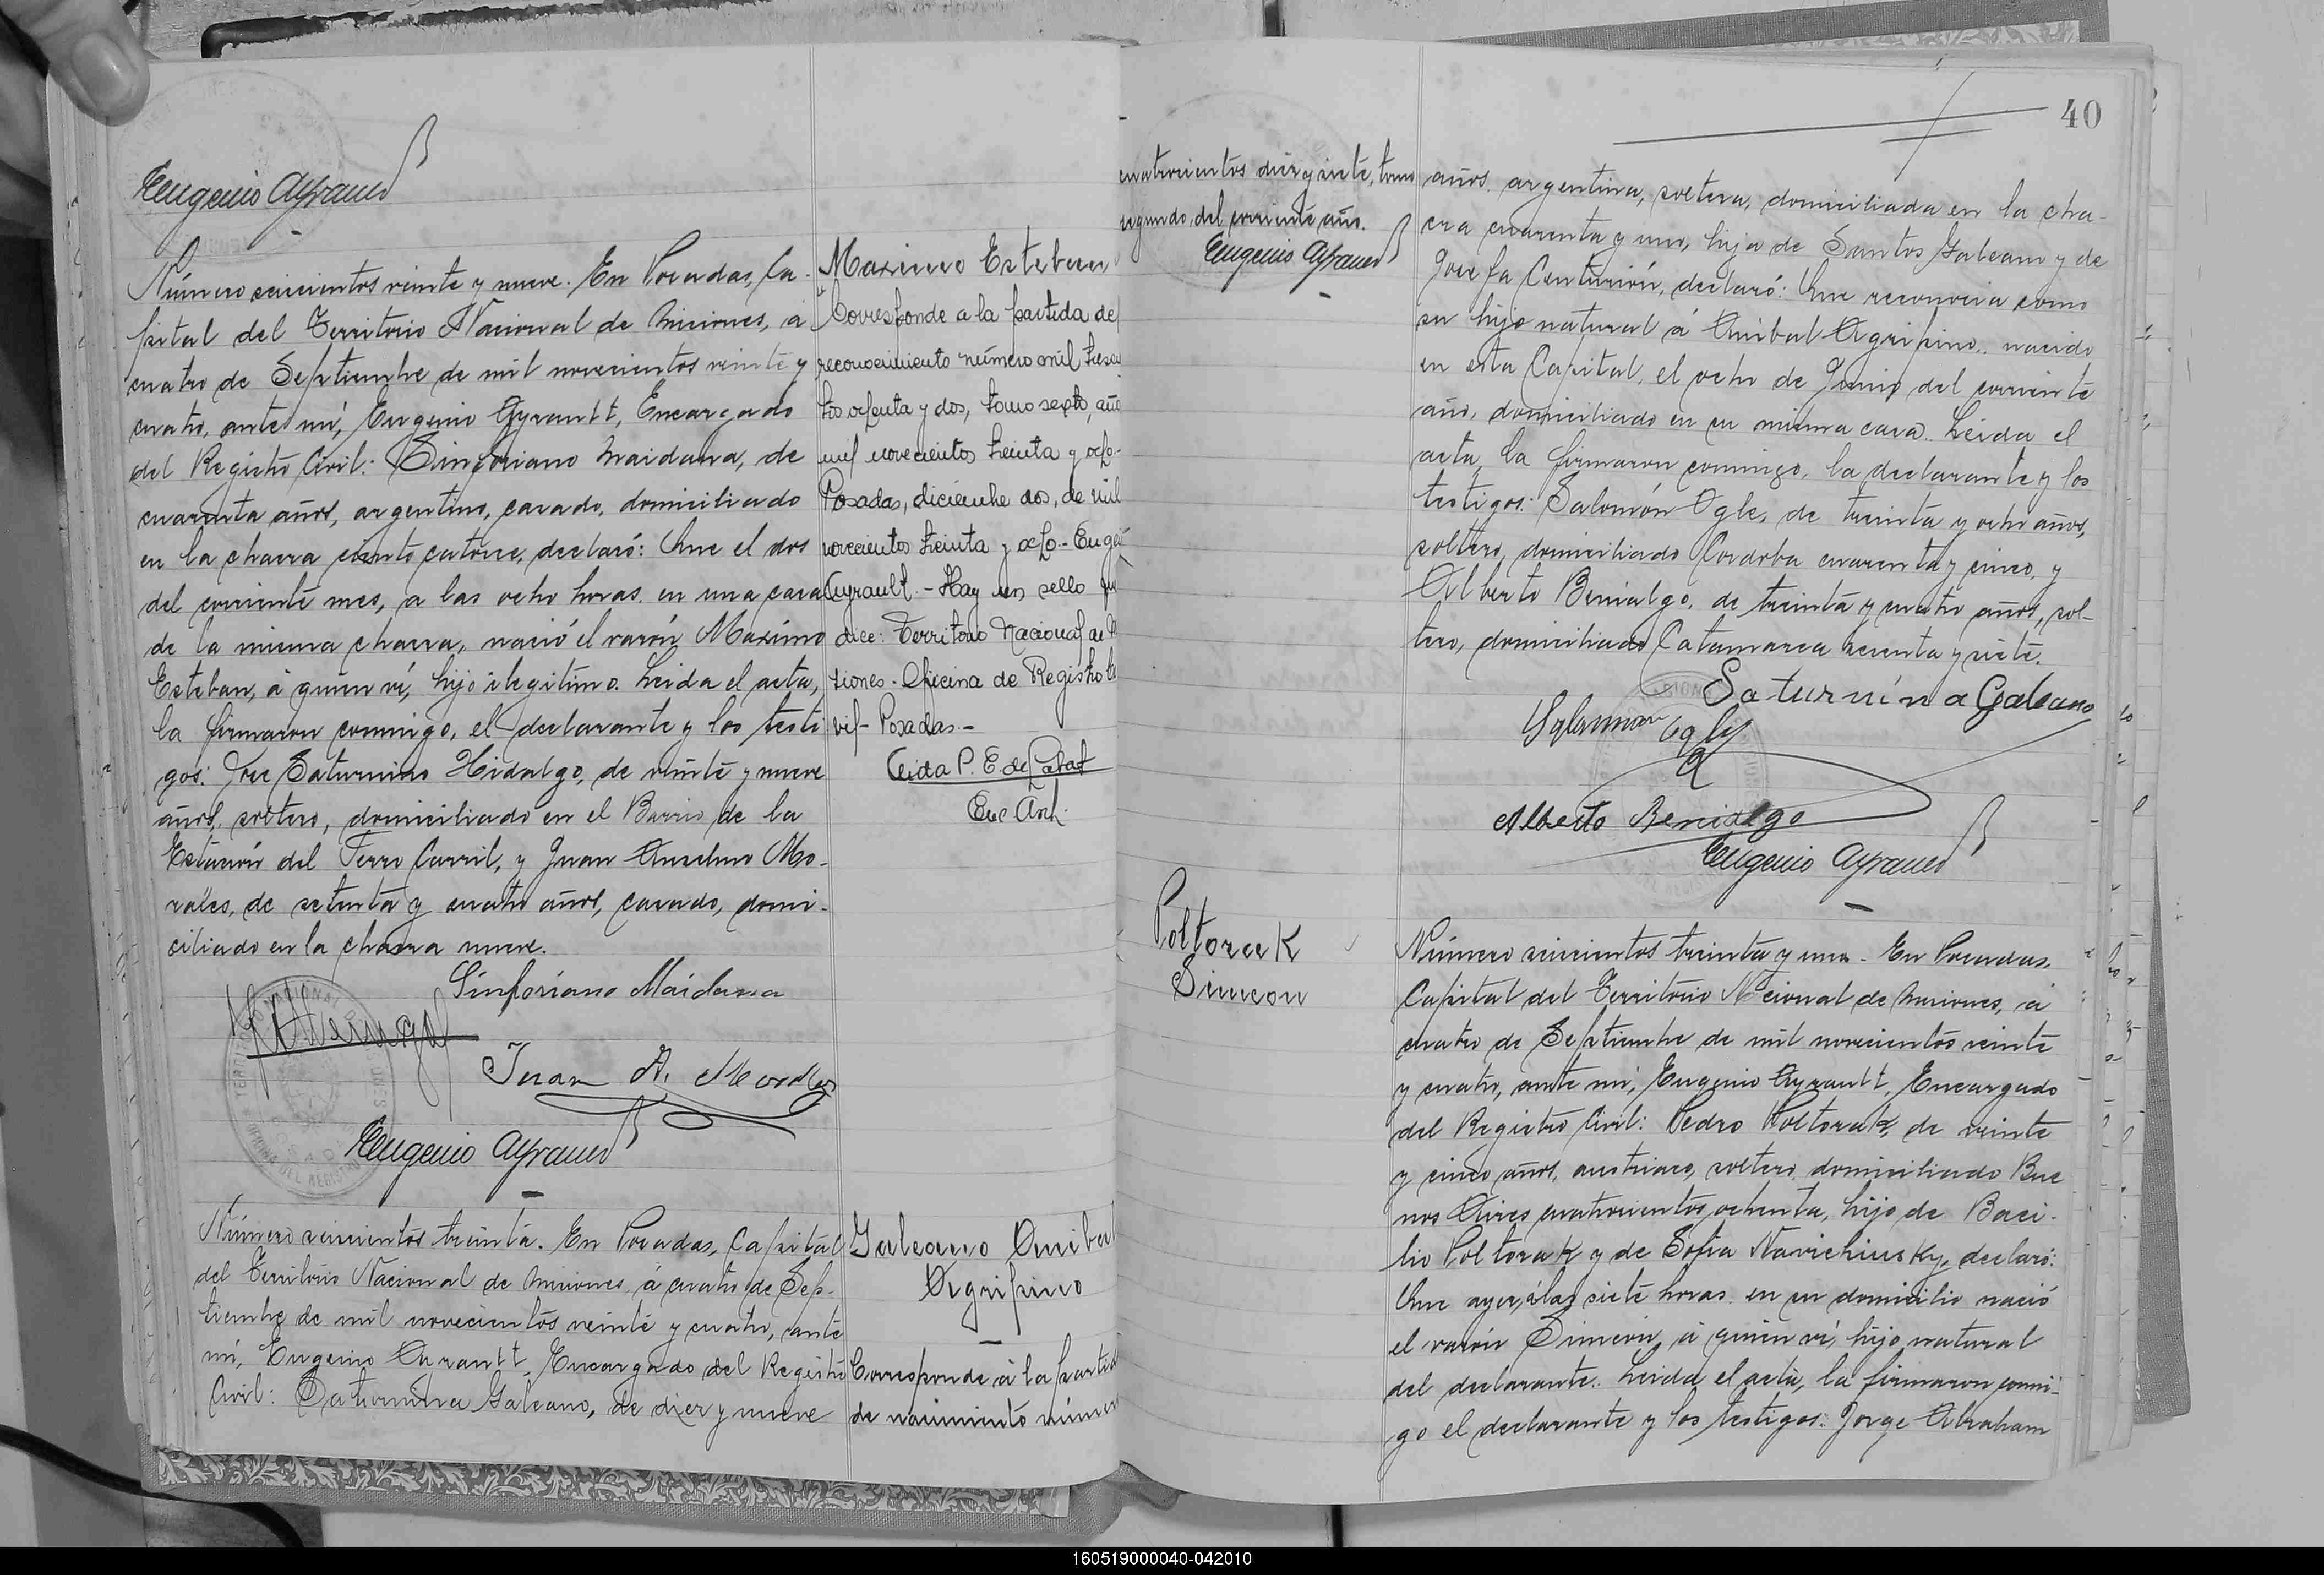 Eugenio Ayrault
Número seiscientos veinte y nueve. En Posadas, Ca-
pital del Territorio Nacional de Misiones, á
cuatro de Septiembre de mil novecientos veinte y
cuatro, ante mí, Eugenio Ayrault, Encargado
del Registro Civil: Sinforiano Maidana, de
cuarenta años, argentino, casado, domiciliado
en la chacra ciento catorce, declaró: Que el dos
del corriente mes, a las ocho horas, en una casa
de la misma chacra, nació el varón Maximo
Esteban, á quien ví, hijo ilegitimo. Leida el acta,
la firmaron conmigo, el declarante y los testi
gos: Jose Saturnino Hidalgo, de veinte y nueve
años, soltero, domiciliado en el Barrio de la
Estación del Ferro Carril, y Juan Anselmo Mo-
rales, de setenta y cuatro años, casado, domi-
ciliado en la chacra nueve.
Sinforiano Maidana
Juan A. Morales
Eugenio Ayrault
Número seiscientos treinta. En Posadas, Capital
del Territorio Nacional de Misiones, á cuatro de Sep-
tiembre de mil novecientos veinte y cuatro, ante
mí, Eugenio Ayrault, Encargado del Registro
Civil: Saturnina Galeano, de diez y nueve
Maximo Esteban
Corresponde a la partida de
reconocimiento número mil tresci
tos ochenta y dos, tomo sexto, año
mil novecientos treinta y ocho.-
Posadas, diciembre dos, de mil
novecientos treinta y ocho.- Euge
Ayrault.- Hay un sello que
dice: Territorio Nacional de
siones.- Oficina de Registro Ci
vil- Posadas.-
Enc. Arch.
Galeano Anibal
Agripino
Corresponde á la partid
de nacimiento número
cuatrocientos diez y siete, tomo
segundo, del corriente año.
Eugenio Ayrault
40
años, argentina, soltera, domiciliada en la cha-
cra cuarenta y uno, hija de Santos Galeano y de
Josefa Centurión, declaró: Que reconocia como
su hijo natural á Anibal Agripino, nacido
en esta Capital, el ocho de Junio del corriente
año, domiciliado en su misma casa. Leida el
acta, la firmaron conmigo, la declarante y los
testigos: Salomón Ogle, de treinta y ocho años,
soltero, domiciliado Cordoba cuarenta y cinco, y
Alberto Benialgo, de treinta y cuatro años, sol-
tero, domiciliado Catamarca sesenta y siete.
Saturnina Galeano
Alberto Benialgo
Eugenio Ayrault
Poltorak
Simeon
Número seiscientos treinta y uno. En Posadas,
Capital del Territorio Nacional de Misiones, á
cuatro de Septiembre de mil novecientos veinte
y cuatro, ante mí, Eugenio Ayrault, Encargado
del Registro Civil: Pedro Poltorak, de veinte
y cinco años, austriaco, soltero, domiciliado Bue
nos Aires cuatrocientos ochenta, hijo de Basi-
lio Poltorak y de Sofia Navichiusky, declaró:
Que ayer, á las siete horas, en su domicilio nació
el varón Simeón, á quien ví, hijo natural
del declarante. Leida el acta, la firmaron conmi-
go el declarante y los testigos: Jorge Abraham
160519000040-042010